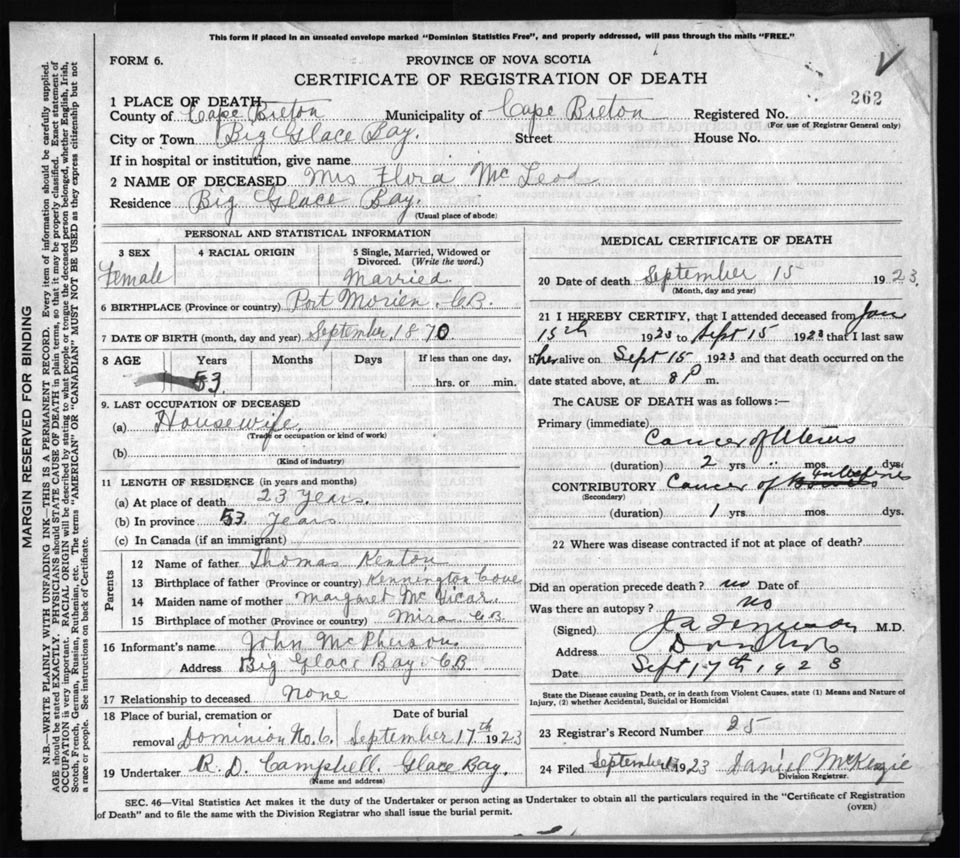 This form if placed in an unsealed envelope marked "Dominion Statistics Free", and properly addressed, will pass through the mails "FREE."
FORM 6.
PROVINCE OF NOVA SCOTIA
CERTIFICATE OF REGISTRATION OF DEATH
262
1 PLACE OF DEATH
County of Cape Breton Municipality of Cape Breton Registered No.
(For use of Registrar General only)
City or Town Big Glace Bay. Street House No.
If in hospital or institution, give name
2 NAME OF DECEASED Mrs Flora McLeod
Residence Big Glace Bay.
(Usual place of abode)
PERSONAL AND STATISTICAL INFORMATION
3 SEX 4 RACIAL ORIGIN 5 Single, Married, Widowed or Divorced. (Write the word.)
Female Married
6 BIRTHPLACE (Province or country) Port Morien. C.B.
7 DATE OF BIRTH (month, day and year) September, 1870
8 AGE Years Months Days If less than one day,
53 hrs. or min.
9. LAST OCCUPATION OF DECEASED
(a) Housewife.
(Trade or occupation or kind of work)
(b)
(Kind of industry)
11 LENGTH OF RESIDENCE (in years and months)
(a) At place of death 23 years.
(b) In province 53. years
(c) In Canada (if an immigrant)
Parents
12 Name of father Thomas Kenton
13 Birthplace of father (Province or country) Kennington Cove
14 Maiden name of mother Margaret McVicar.
15 Birthplace of mother (Province or country) Mira C.B.
16 Informant's name John McPherson.
Address Big Glace Bay. C.B.
17 Relationship to deceased None
18 Place of burial, cremation or removal Dominion No. 6. Date of burial September 17th 1923
19 Undertaker R. D. Campbell. Glace Bay.
(Name and address)
MEDICAL CERTIFICATE OF DEATH
20 Date of death September 15 1923.
(Month, day and year)
21 I HEREBY CERTIFY, that I attended deceased from Jan
15th 1923 to Sept 15 1923 that I last saw
her alive on Sept 15 1923 and that death occurred on the
date stated above, at 8 P m.
The CAUSE OF DEATH was as follows :—
Primary (immediate)
Cancer of Uterus
(duration) 2 yrs. " mos. dys.
CONTRIBUTORY Cancer of Intestines
(Secondary)
(duration) 1 yrs. mos. dys.
22 Where was disease contracted if not at place of death?
Did an operation precede death? no Date of
Was there an autopsy? no
(Signed) M.D.
Address
Date Sept 17th 1923
State the Disease causing Death, or in death from Violent Causes, state (1) Means and Nature of Injury, (2) whether Accidental, Suicidal or Homicidal
23 Registrar's Record Number 25
24 Filed September 1923 Daniel McKenzie
Division Registrar.
SEC. 46—Vital Statistics Act makes it the duty of the Undertaker or person acting as Undertaker to obtain all the particulars required in the "Certificate of Registration
of Death" and to file the same with the Division Registrar who shall issue the burial permit. (OVER)
MARGIN RESERVED FOR BINDING
N.B.—WRITE PLAINLY WITH UNFADING INK—THIS IS A PERMANENT RECORD. Every item of information should be carefully supplied.
AGE should be stated EXACTLY. PHYSICIANS should STATE CAUSE OF DEATH in plain terms, so that it may be properly classified. Exact statement of
OCCUPATION is very important. RACIAL ORIGIN will be described by stating to what people or tongue the deceased person belonged, whether English, Irish,
Scotch, French, German, Russian, Ruthenian, etc. The terms "AMERICAN" OR "CANADIAN" MUST NOT BE USED as they express citizenship but not
a race or people. See instructions on back of Certificate.